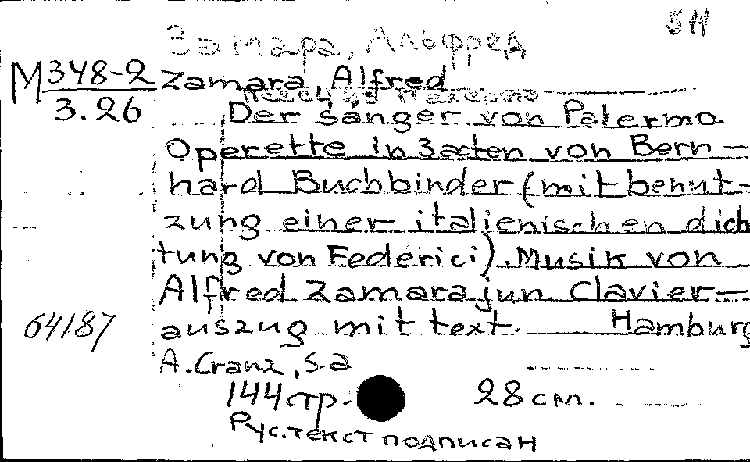 511
Замара, Альфред
М 348-2
3.26
Zamara Alfred
Der Sänger von Palermo.
Operette in 3 acten von Bern-
hard Buchbinder (mit benut-
zung einer italienischen dich
tung von Federici). Musik von
Alfred Zamara jun Clavier-
64187
auszug mit text. Hamburg
A. Cranz, s.a
144 стр. 28 cm.
Рус. текст подписан